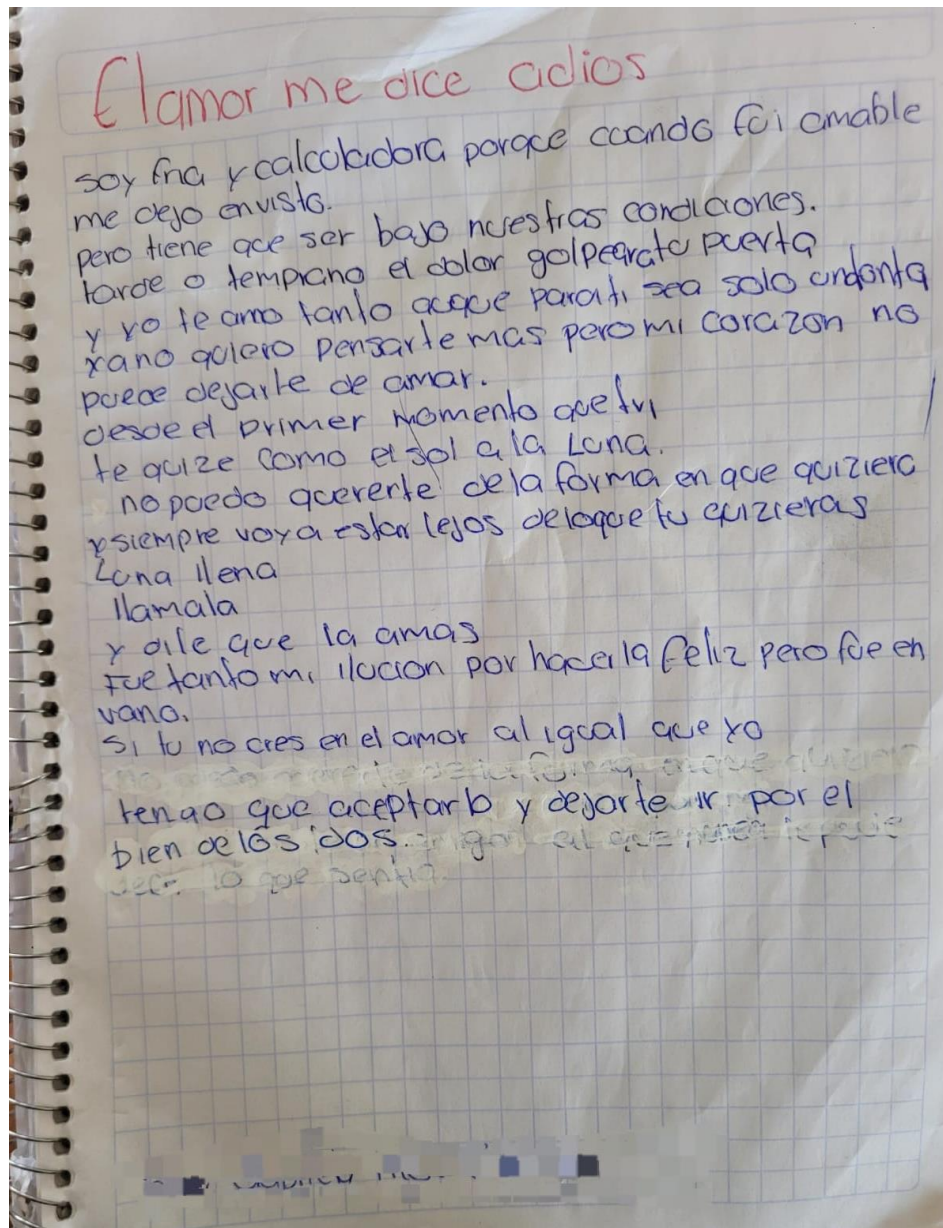 El amor me dice adios
soy fria y calculadora porque cuando fui amable
me dejo en visto.
pero tiene que ser bajo nuestras condiciones.
tarde o temprano el dolor golpeara tu puerta
y yo te amo tanto auque para ti sea solo un donta
ya no quiero pensarte mas pero mi corazon no
puede dejarte de amar.
desde el primer momento que tvi
te quize como el sol a la Luna.
no puedo quererte de la forma en que quiziera
y siempre voy a estar lejos de lo que tu quizieras
Luna llena
llamala
y dile que la amas
Fue tanto mi ilucion por hacerla feliz pero fue en
vano.
Si tu no cres en el amor al igual que yo
tengo que aceptarlo y dejarte ir por el
bien de los dos.
lo que sentia